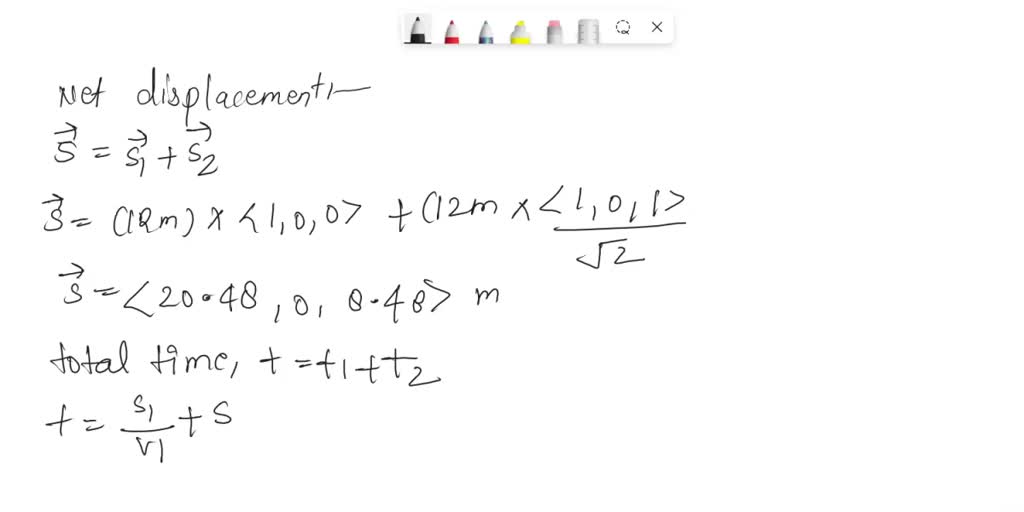 Net displacement:-
\vec{S} = \vec{S_1} + \vec{S_2}
\vec{S} = (12m) × <1,0,0> + (12m × <1,0,1>/√2
\vec{S} = <20.48, 0, 8.48> m
total time, t = t1 + t2
t = S1/V1 + S